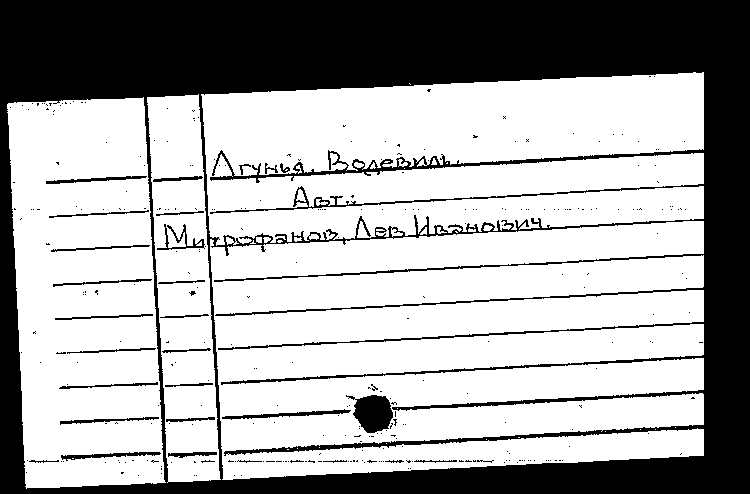 Лгунья. Водевиль.
Авт.:
Митрофанов, Лев Иванович.